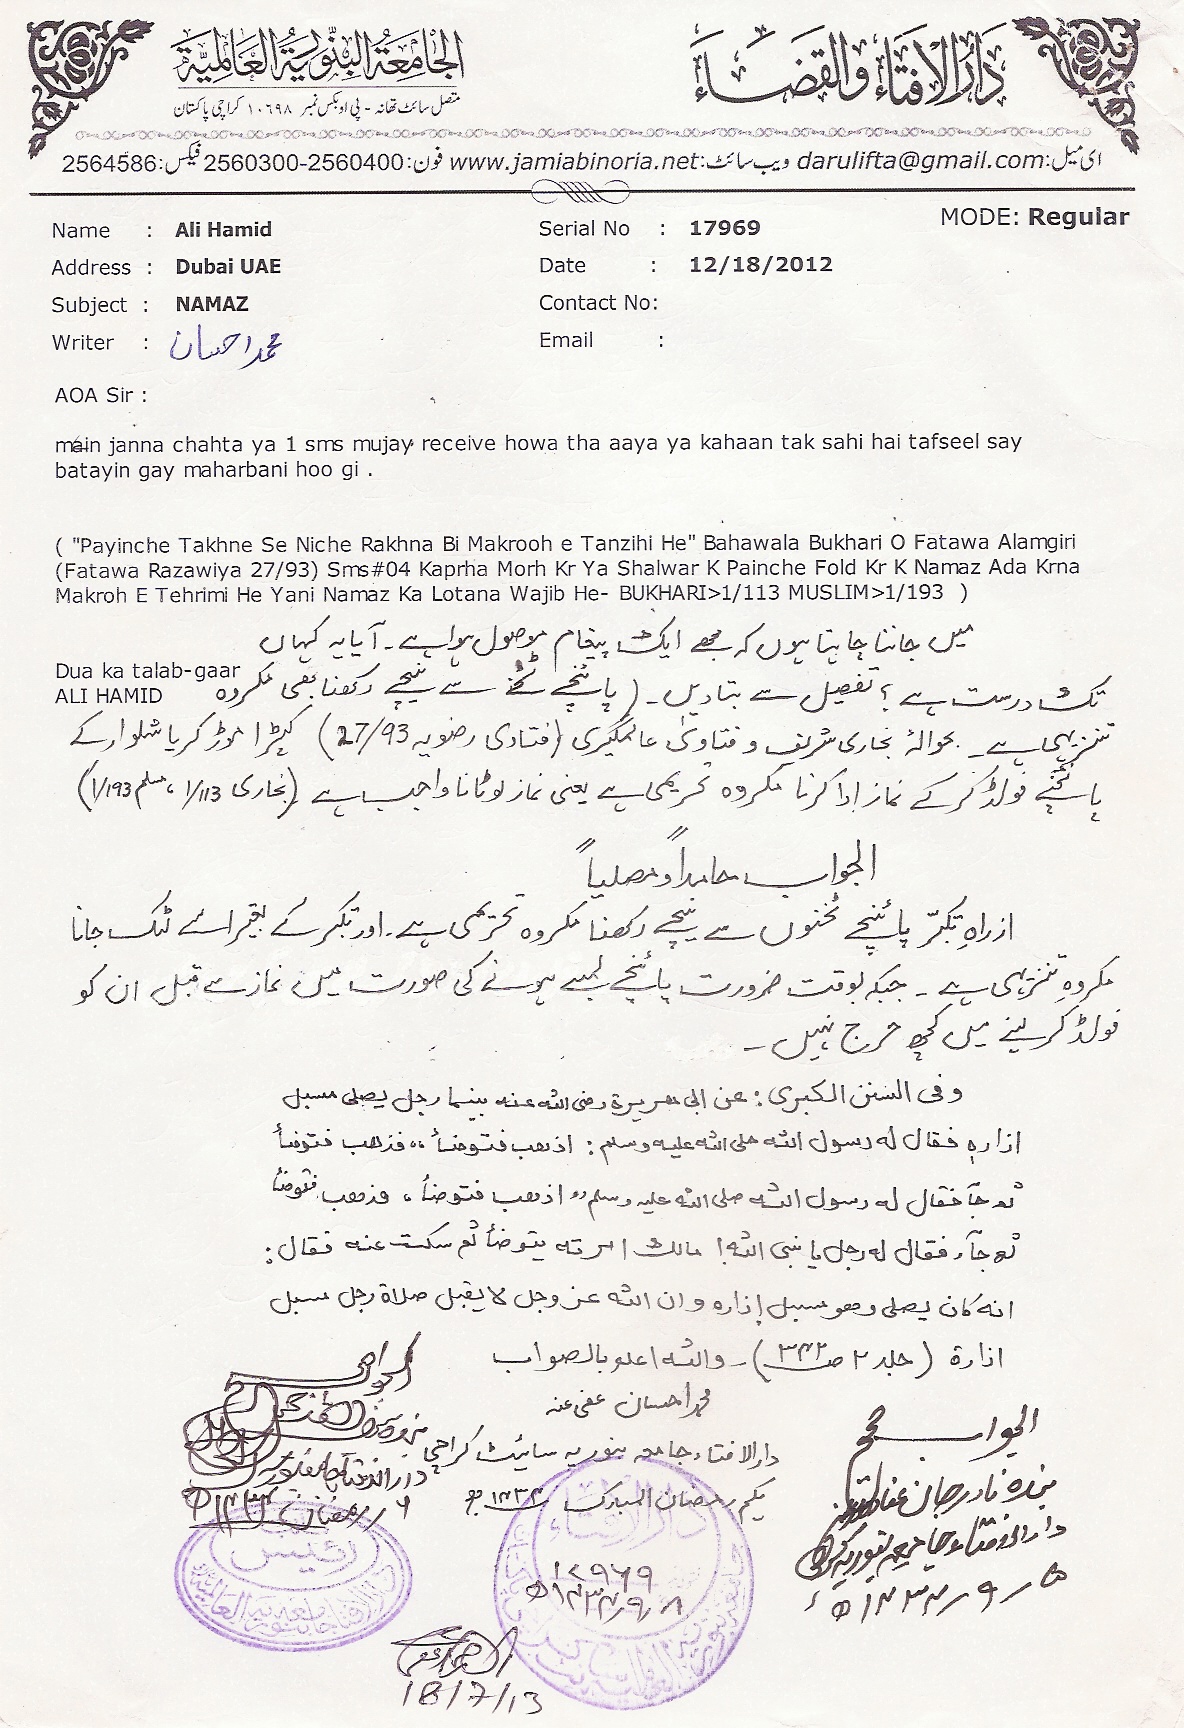 الجامعۃ البنوریۃ العالمیۃ
دار الافتاء والقضاء
متصل سائٹ تھانہ - پی او بکس نمبر ۱۰۶۹۸ کراچی پاکستان
ای میل:darulifta@gmail.com ویب سائٹ:www.jamiabinoria.net فون:2560300-2560400 فیکس:2564586
MODE: Regular
Name : Ali Hamid
Serial No : 17969
Address : Dubai UAE
Date : 12/18/2012
Subject : NAMAZ
Contact No:
Writer : محمد احسان
Email :
AOA Sir :
main janna chahta ya 1 sms mujay receive howa tha aaya ya kahaan tak sahi hai tafseel say
batayin gay maharbani hoo gi .
( "Payinche Takhne Se Niche Rakhna Bi Makrooh e Tanzihi He" Bahawala Bukhari O Fatawa Alamgiri
(Fatawa Razawiya 27/93) Sms#04 Kaprha Morh Kr Ya Shalwar K Painche Fold Kr K Namaz Ada Krna
Makroh E Tehrimi He Yani Namaz Ka Lotana Wajib He- BUKHARI>1/113 MUSLIM>1/193 )
میں جاننا چاہتا ہوں کہ مجھے ایک پیغام موصول ہوا ہے۔ آیا یہ کہاں
Dua ka talab-gaar
ALI HAMID
تک درست ہے؟ تفصیل سے بتا دیں۔ (پائنچے ٹخنے سے نیچے رکھنا بھی مکروہ
تنزیہی ہے۔ بحوالۂ بخاری شریف و فتاویٰ عالمگیری (فتاویٰ رضویہ 27/93) کپڑا موڑ کر یا شلوار کے
پائنچے فولڈ کر کے نماز ادا کرنا مکروہ تحریمی ہے یعنی نماز لوٹانا واجب ہے (بخاری 1/113، مسلم 1/193)
الجواب حامداً و مصلیاً
از راہِ تکبّر پائنچے ٹخنوں سے نیچے رکھنا مکروہ تحریمی ہے۔ اور تکبر کے بغیر اسے لٹک جانا
مکروہِ تنزیہی ہے۔ جبکہ بوقت ضرورت پائنچے لمبے ہونے کی صورت میں نماز سے قبل ان کو
فولڈ کر لینے میں کچھ حرج نہیں۔
وفی السنن الکبری: عن ابی ھریرۃ رضی اللہ عنہ بینما رجل یصلی مسبل
ازارہ فقال لہ رسول اللہ صلی اللہ علیہ وسلم: اذھب فتوضأ،، فذھب فتوضأ
ثم جآء فقال لہ رسول اللہ صلی اللہ علیہ وسلم،، اذھب فتوضأ، فذھب فتوضأ
ثم جآء فقال لہ رجل یا نبی اللہ! مالک امرتہ یتوضأ ثم سکت عنہ فقال:
انہ کان یصلی وھو مسبل إزارہ و ان اللہ عز وجل لا یقبل صلاۃ رجل مسبل
ازارۃ (جلد ۲ صـ ۳۴۲)۔ واللہ اعلم بالصواب
محمد احسان عفی عنہ
دار الافتاء جامعہ بنوریہ سائیٹ کراچی
یکم رمضان المبارک ۱۴۳۴ھ
الجواب صحیح
بندہ نادر جان
دار الافتاء جامعہ بنوریہ کراچی
۵/۹/۱۴۳۴ھ
دار الافتاء
۶/رمضان ۱۴۳۴ھ
رئیس
دار الافتاء
۱۷۹۶۹
۸/۹/۱۴۳۴ھ
18/7/13